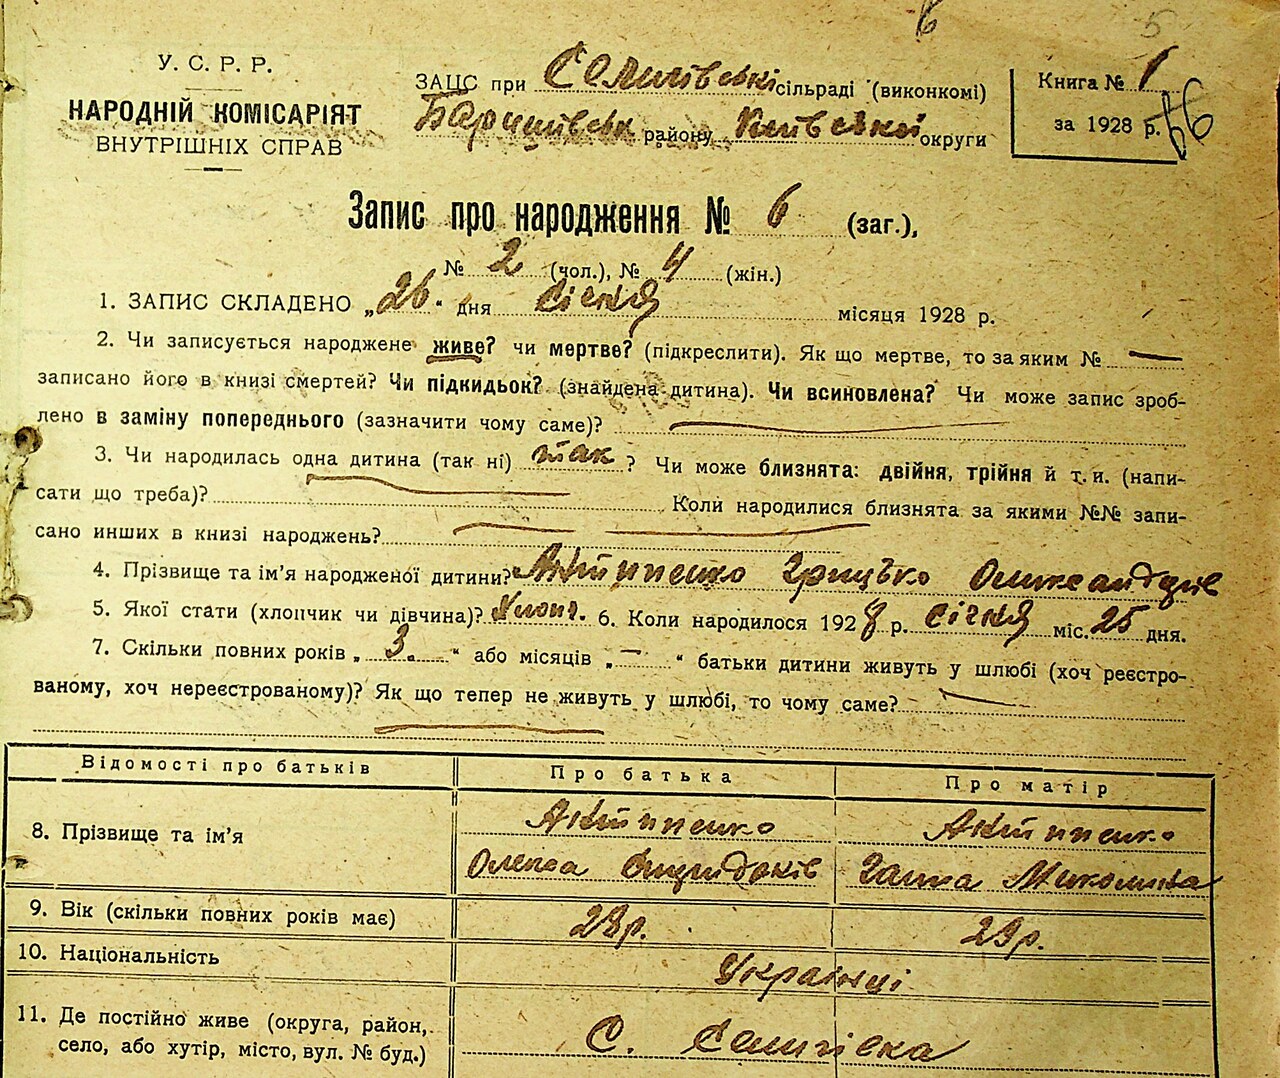 У. С. Р. Р.
НАРОДНІЙ КОМІСАРІЯТ
ВНУТРІШНІХ СПРАВ
ЗАЦС при Селищівські сільраді (виконкомі)
Баришівськ району Київської округи
Книга № 1
за 1928 р.
Запис про народження № 6 (заг.),
№ 2 (чол.), № 4 (жін.)
1. ЗАПИС СКЛАДЕНО „26“ дня січня місяця 1928 р.
2. Чи записується народжене живе? чи мертве? (підкреслити). Як що мертве, то за яким № —
записано його в книзі смертей? Чи підкидьок? (знайдена дитина). Чи всиновлена? Чи може запис зроб-
лено в заміну попереднього (зазначити чому саме)?
3. Чи народилась одна дитина (так ні) так ? Чи може близнята: двійня, трійня й т. и. (напи-
сати що треба)? Коли народилися близнята за якими №№ запи-
сано инших в книзі народжень?
4. Прізвище та ім’я народженої дитини? Антипенко Грицько Олександрів
5. Якої стати (хлопчик чи дівчина)? Хлопч. 6. Коли народилося 1928 р. січня міс. 25 дня.
7. Скільки повних років „ 3. “ або місяців „ — “ батьки дитини живуть у шлюбі (хоч реєстро-
ваному, хоч нереєстрованому)? Як що тепер не живуть у шлюбі, то чому саме? —
Відомості про батьків
Про батька
Про матір
8. Прізвище та ім’я
Антипенко
Антипенко
Олекса
Ганна Миколаївна
9. Вік (скільки повних років має)
28р.
29р.
10. Національність
Українці
11. Де постійно живе (округа, район,
село, або хутір, місто, вул. № буд.)
С.